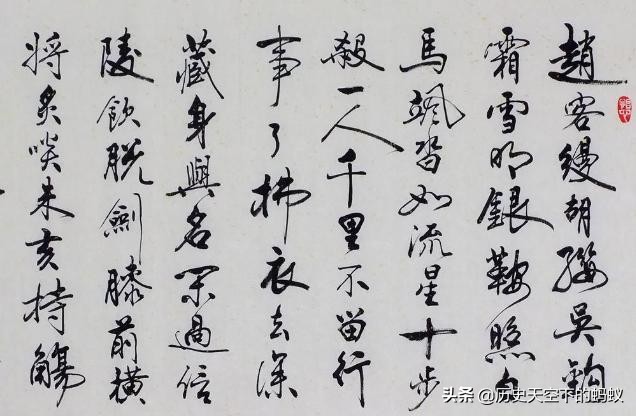 趙客縵胡纓吳鉤
霜雪明銀鞍照白
馬颯沓如流星十步
殺一人千里不留行
事了拂衣去深
藏身與名閑過信
陵飲脫劍膝前橫
將炙啖朱亥持觴
头条 @历史天空下的蚂蚁